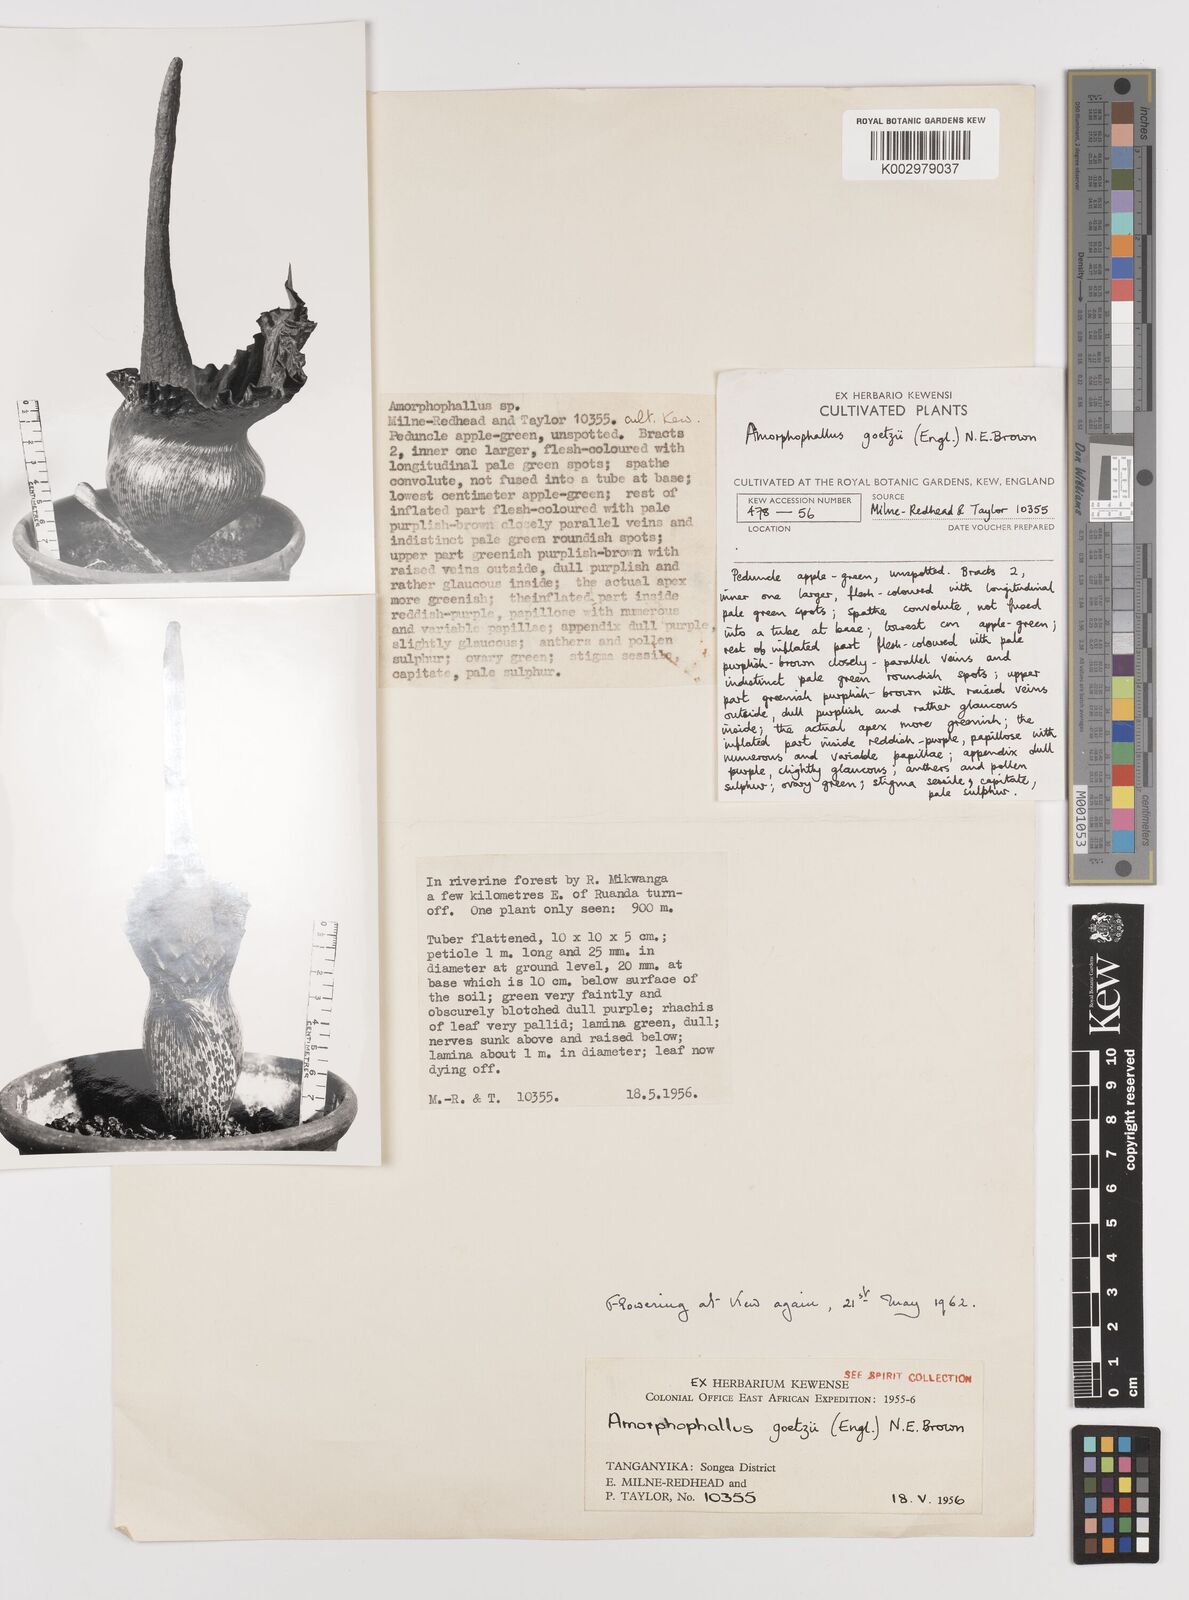 ROYAL BOTANIC GARDENS KEW
K002979037
Amorphophallus sp.
Milne-Redhead and Taylor 10355. cult. Kew.
Peduncle apple-green, unspotted. Bracts
2, inner one larger, flesh-coloured with
longitudinal pale green spots; spathe
convolute, not fused into a tube at base;
lowest centimeter apple-green; rest of
inflated part flesh-coloured with pale
purplish-brown closely parallel veins and
indistinct pale green roundish spots;
upper part greenish purplish-brown with
raised veins outside, dull purplish and
rather glaucous inside; the actual apex
more greenish; theinflated part inside
reddish-purple, papillose with numerous
and variable papillae; appendix dull purple,
slightly glaucous; anthers and pollen
sulphur; ovary green; stigma sessile,
capitate, pale sulphur.
EX HERBARIO KEWENSI
CULTIVATED PLANTS
Amorphophallus goetzii (Engl.) N.E.Brown
CULTIVATED AT THE ROYAL BOTANIC GARDENS, KEW, ENGLAND
KEW ACCESSION NUMBER
478 — 56
SOURCE
Milne-Redhead & Taylor 10355
LOCATION
DATE VOUCHER PREPARED
Peduncle apple-green, unspotted. Bracts 2,
inner one larger, flesh-coloured with longitudinal
pale green spots; spathe convolute, not fused
into a tube at base; lowest cm apple-green;
rest of inflated part flesh-coloured with pale
purplish-brown closely-parallel veins and
indistinct pale green roundish spots; upper
part greenish purplish-brown with raised veins
outside, dull purplish and rather glaucous
inside; the actual apex more greenish; the
inflated part inside reddish-purple, papillose with
numerous and variable papillae; appendix dull
purple, slightly glaucous; anthers and pollen
sulphur; ovary green; stigma sessile, capitate,
pale sulphur.
In riverine forest by R. Mikwanga
a few kilometres E. of Ruanda turn-
off. One plant only seen: 900 m.
Tuber flattened, 10 x 10 x 5 cm.;
petiole 1 m. long and 25 mm. in
diameter at ground level, 20 mm. at
base which is 10 cm. below surface of
the soil; green very faintly and
obscurely blotched dull purple; rhachis
of leaf very pallid; lamina green, dull;
nerves sunk above and raised below;
lamina about 1 m. in diameter; leaf now
dying off.
M.-R. & T. 10355. 18.5.1956.
Flowering at Kew again, 21st May 1962.
SEE SPIRIT COLLECTION
EX HERBARIUM KEWENSE
COLONIAL OFFICE EAST AFRICAN EXPEDITION: 1955-6
Amorphophallus goetzii (Engl.) N.E.Brown
TANGANYIKA: Songea District
E. MILNE-REDHEAD and
P. TAYLOR, No. 10355 18. V. 1956
CENTIMETRES
CENTIMETRES
inches
Density
Don Williams
centimeters
M001053
Royal Botanic Gardens
Kew
copyright reserved
0 1 2 3 4 5 6 7 8 9 10
cm